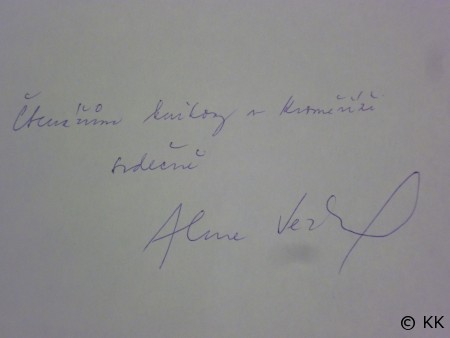 Čtenářům knihovny v Kroměříži
srdečně
Alena
© KK